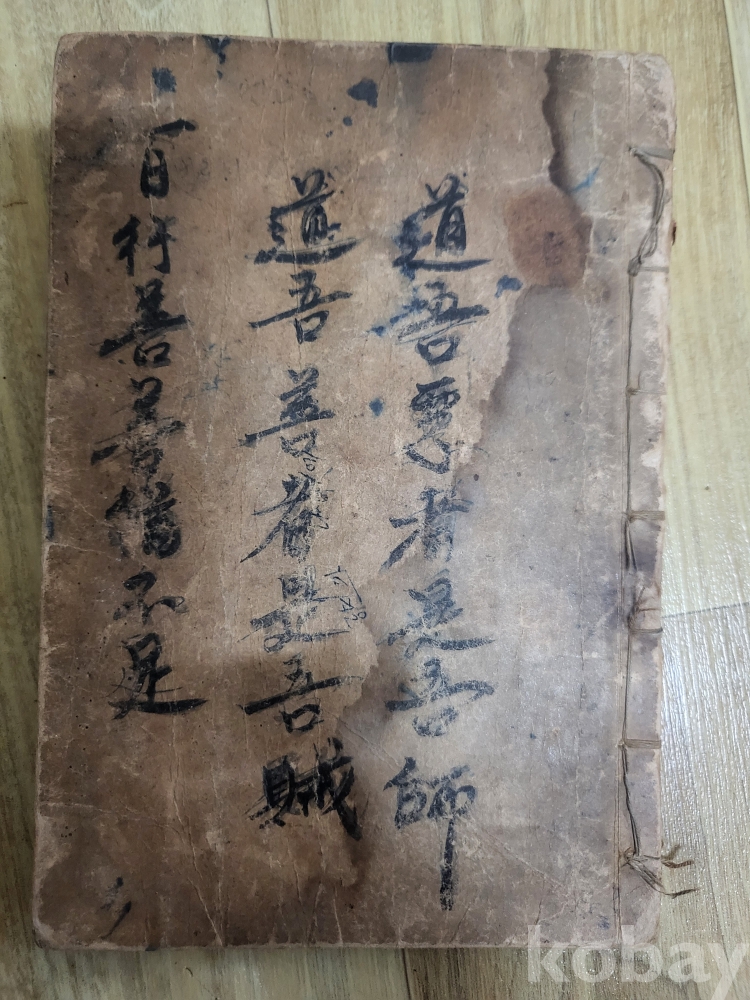 道吾惡者是吾師
道吾善者是吾賊
一日行善善猶不足
kobay